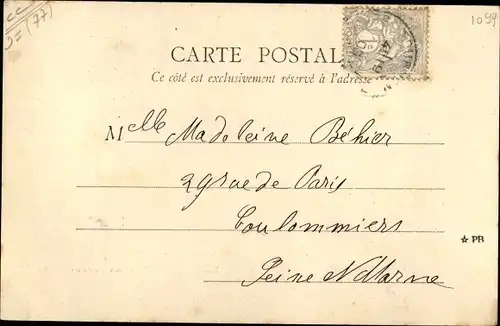 cc
D= (77)
1099
CARTE POSTALE
Ce côté est exclusivement réservé à l'adresse
Mlle Madeleine Béhier
29 rue de Paris
Coulommiers
Seine & Marne
★ PB